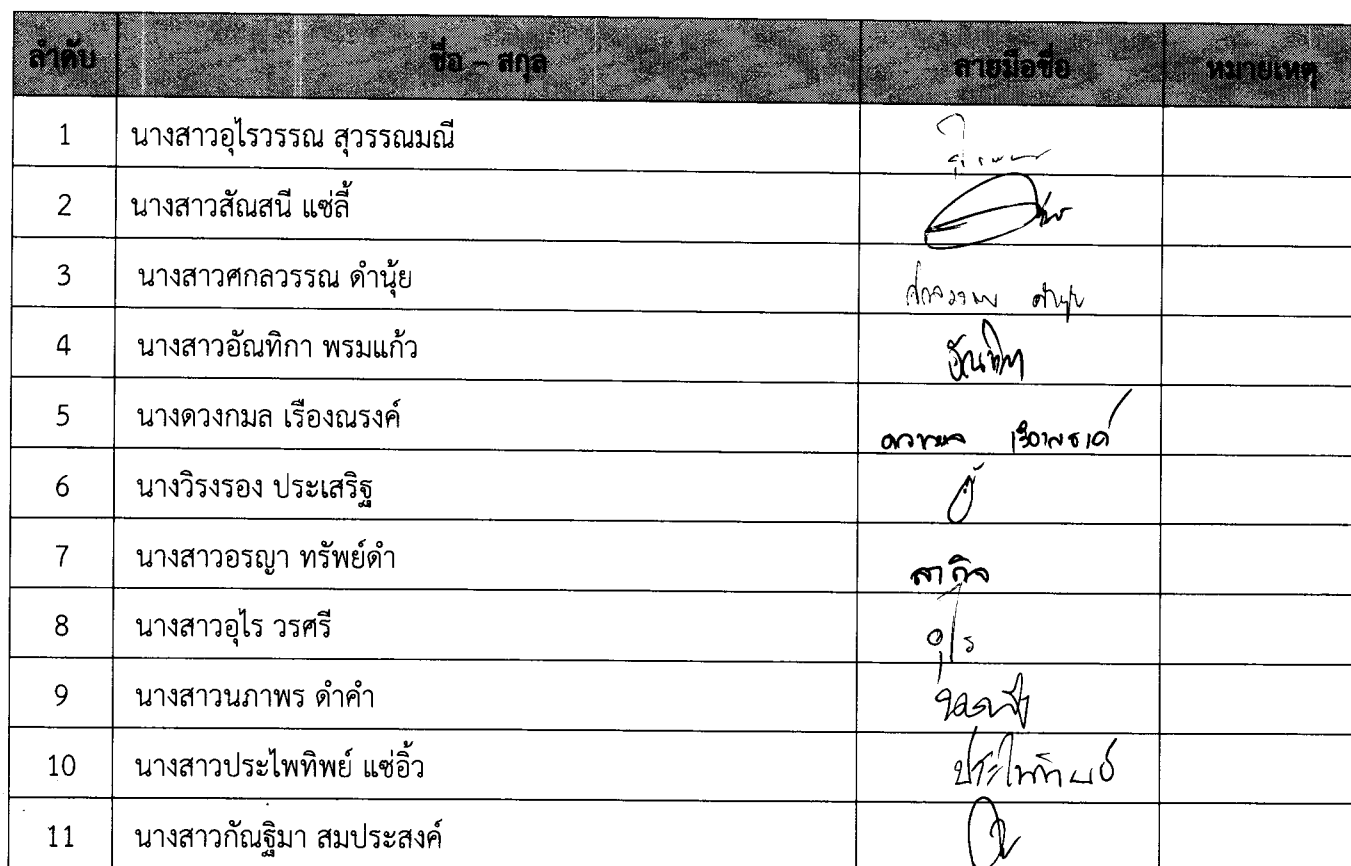 ลำดับ ชื่อ – สกุล ลายมือชื่อ หมายเหตุ
1 นางสาวอุไรวรรณ สุวรรณมณี
2 นางสาวสัณสนี แซ่ลี้
3 นางสาวศกลวรรณ ดำนุ้ย ศกลวรรณ ดำนุ้ย
4 นางสาวอัณทิกา พรมแก้ว อัณทิกา
5 นางดวงกมล เรืองณรงค์ ดวงกมล เรืองณรงค์
6 นางวิรงรอง ประเสริฐ
7 นางสาวอรญา ทรัพย์ดำ
8 นางสาวอุไร วรศรี อุไร
9 นางสาวนภาพร ดำคำ
10 นางสาวประไพทิพย์ แซ่อิ้ว ประไพทิพย์
11 นางสาวกัณฐิมา สมประสงค์